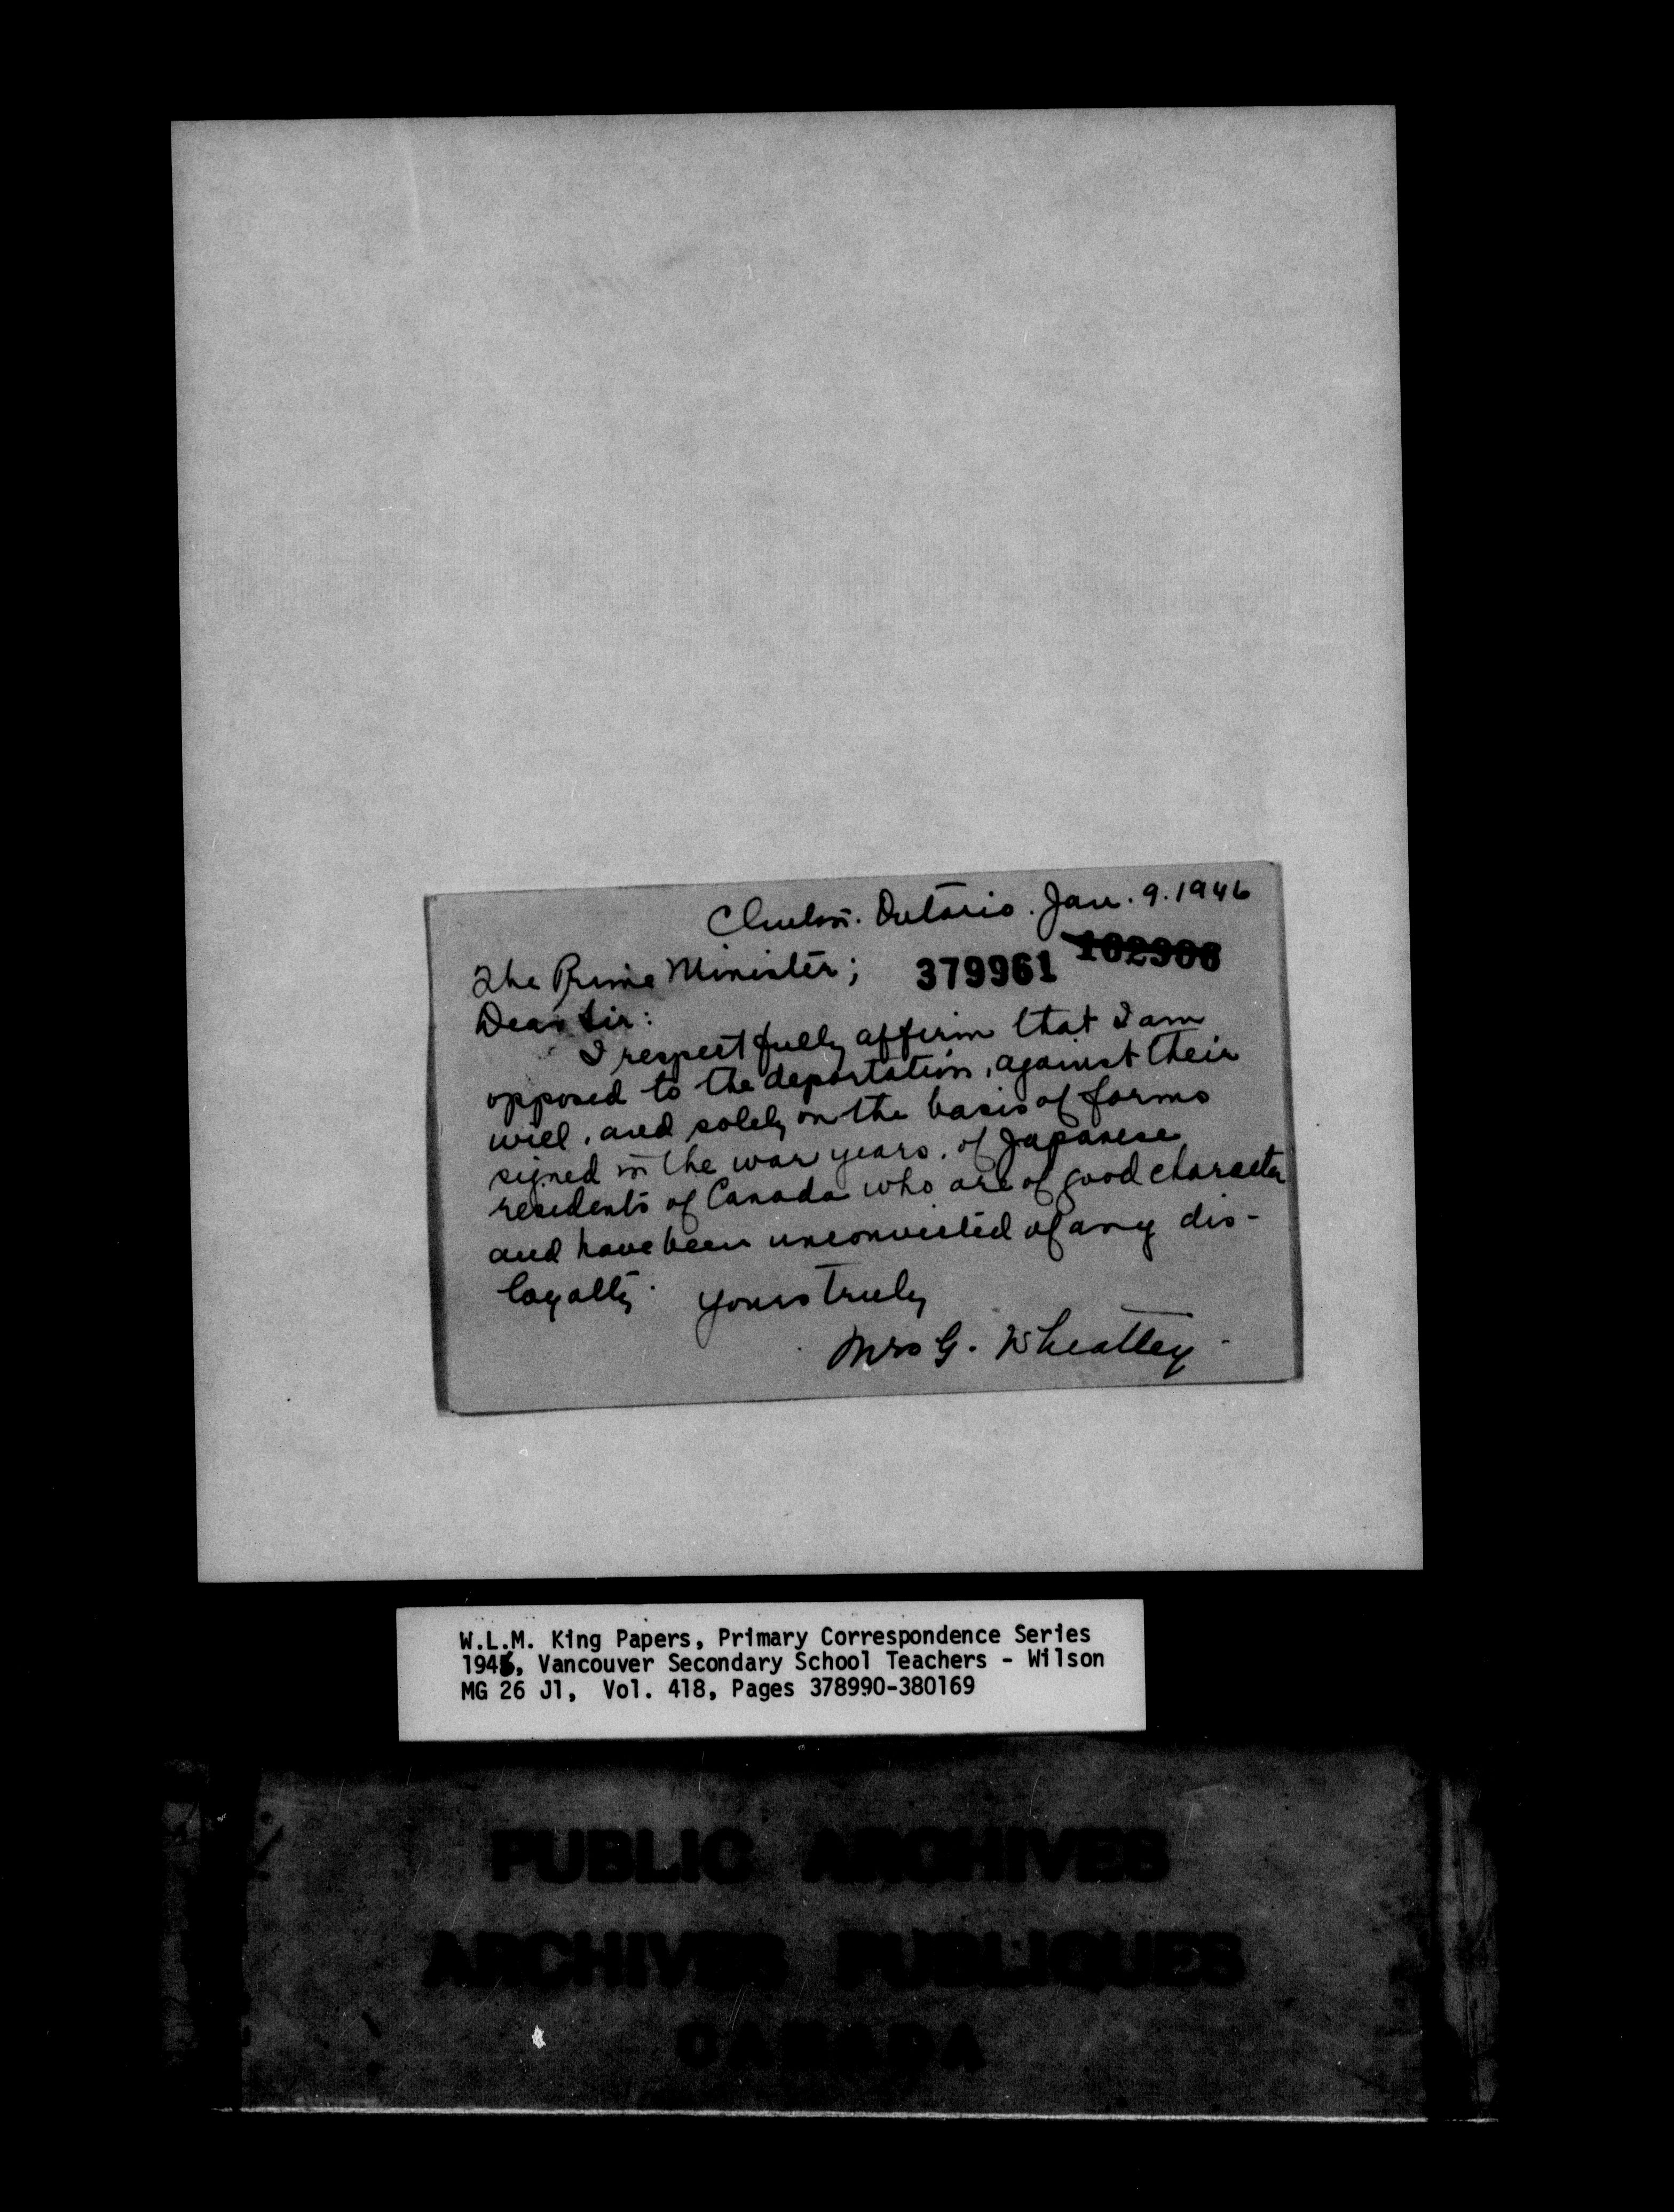 Clinton. Ontario. Jan. 9. 1946
The Prime Minister;
379961 102906
Dear Sir:
I respectfully affirm that I am
opposed to the deportation, against their
will, and solely on the basis of forms
signed in the war years, of Japanese
residents of Canada who are of good character
and have been unconvicted of any dis-
loyalty. Yours truly
Mrs G. Wheatley.
W.L.M. King Papers, Primary Correspondence Series
1946, Vancouver Secondary School Teachers - Wilson
MG 26 J1, Vol. 418, Pages 378990-380169
PUBLIC ARCHIVES
ARCHIVES PUBLIQUES
CANADA